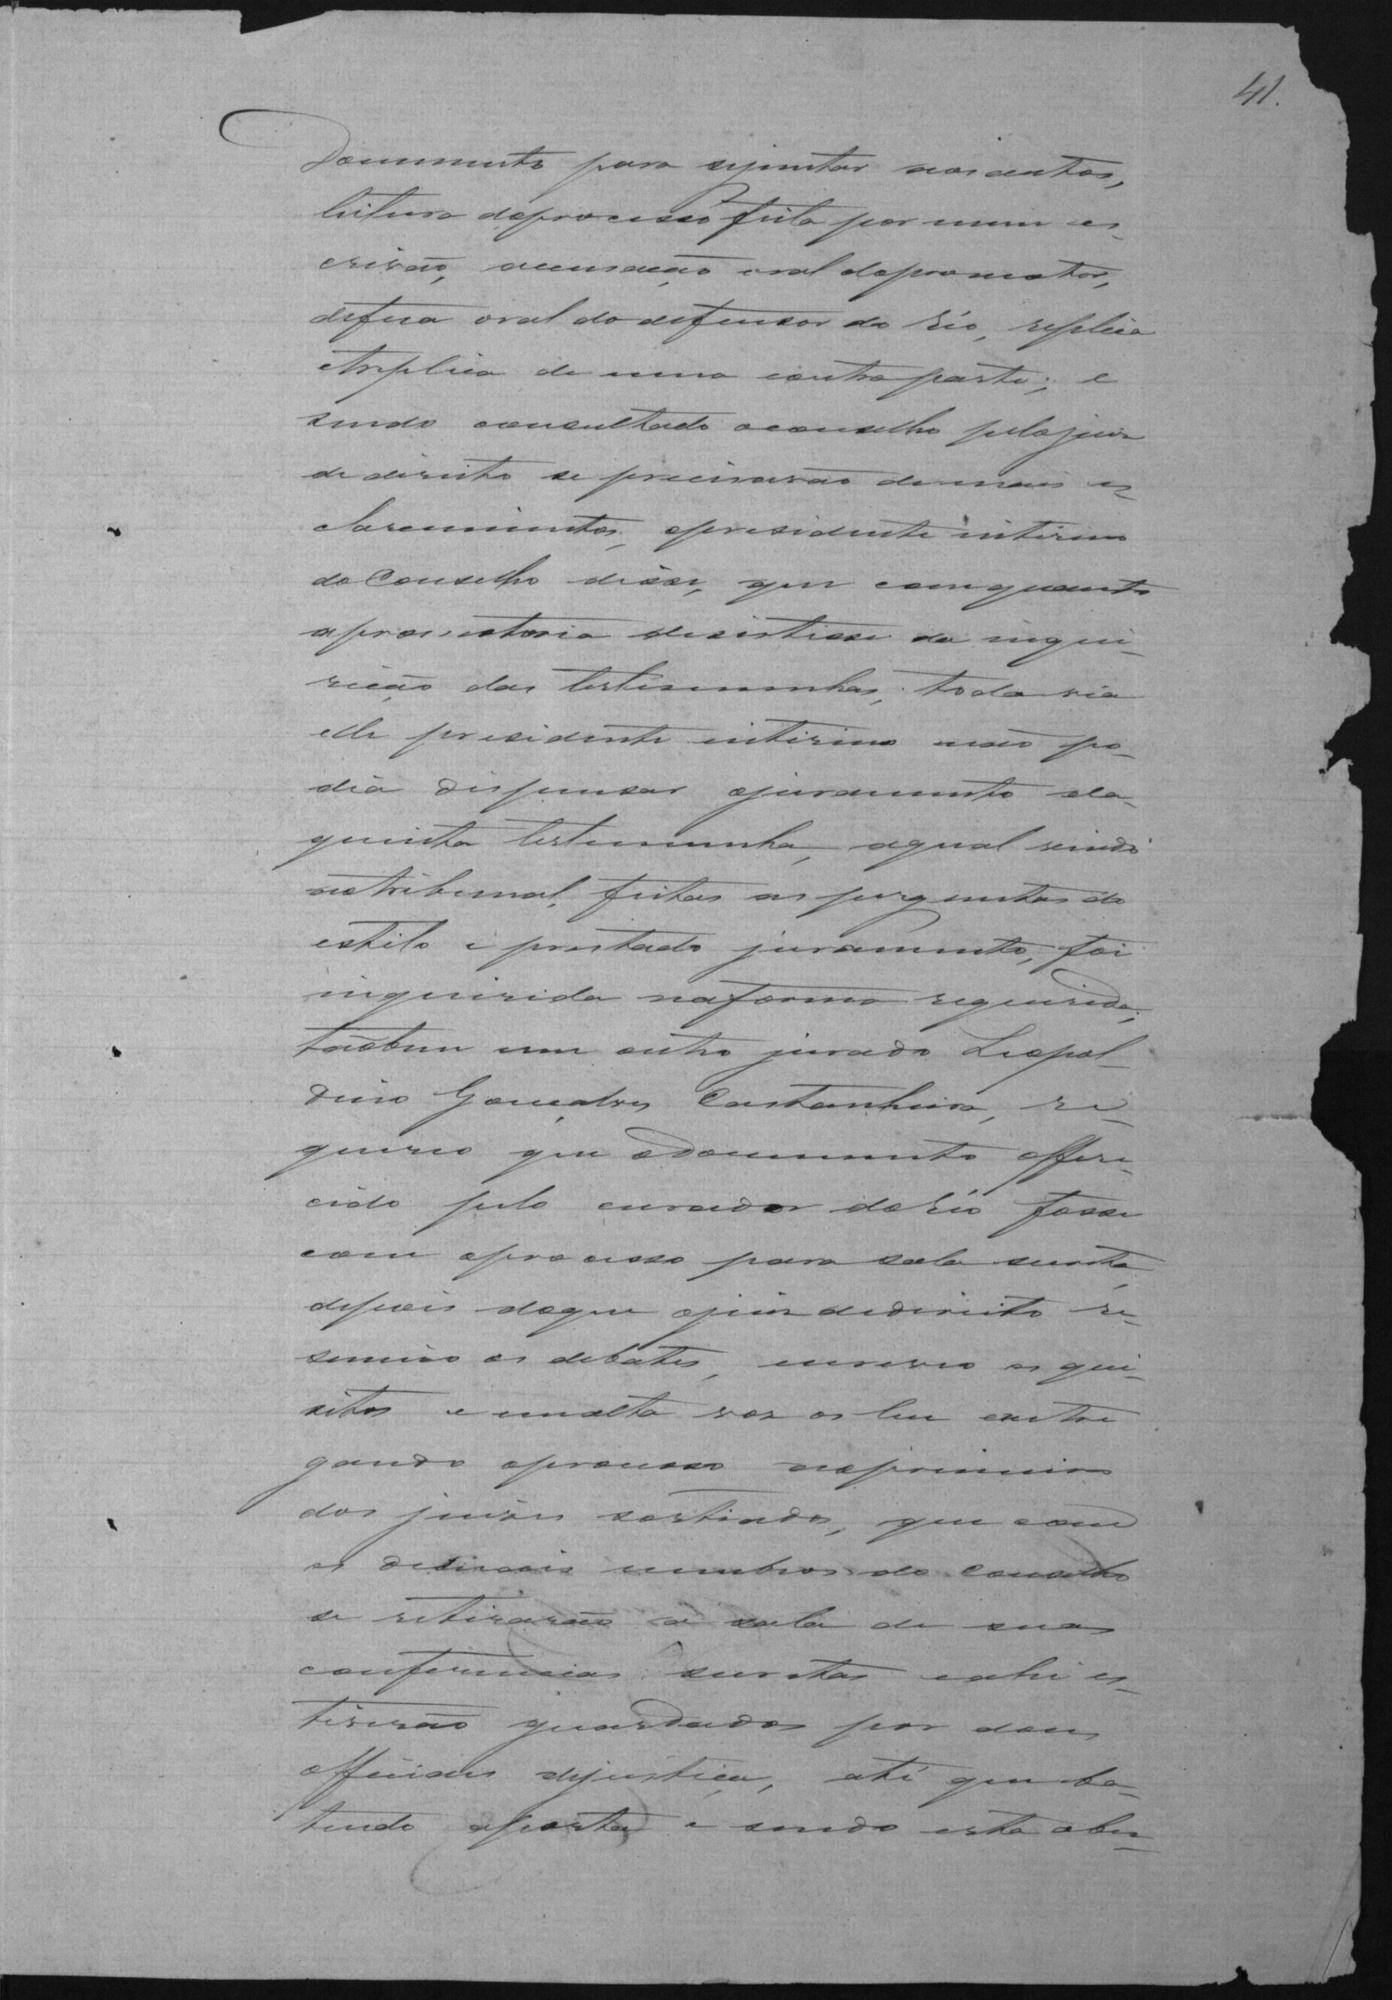 41.
Documento para ajuntar nos autos,
leitura do processo feita por mim es-
crivão, accusação oral do promotor,
defeza oral do defensor do réo, replica
e treplica de uma e outra parte; e
sendo consultado o conselho pelo juiz
de direito se precisavão de mais es-
clarecimentos, o presidente interino
do Conselho disse, que com quanto
a promotoria desistisse da inqui-
rição das testemunhas, todavia
elle presidente interino não po-
dia dispensar o juramento da
quinta testemunha, a qual vindo
ao tribunal, feitas as perguntas do
estilo e prestado juramento, foi
inquirida na forma requerida;
tãobem um outro jurado Leopol-
dino Gonçalves Castanheira, re-
quereo que o documento offere-
cido pelo curador do réo fosse
com o processo para sala secreta,
depois do que o juiz de direito re-
sumio os debates, escreveo os qui-
sitos e em alta voz os leu entre
gando o processo ao primeiro
dos juizes sorteados, que com
os demais membros do Conselho
se retirarão a sala de suas
conferencias secretas e ahi es-
tiverão guardados por dous
officiaes de justiça, até que ba-
tendo a porta e sendo esta aber-